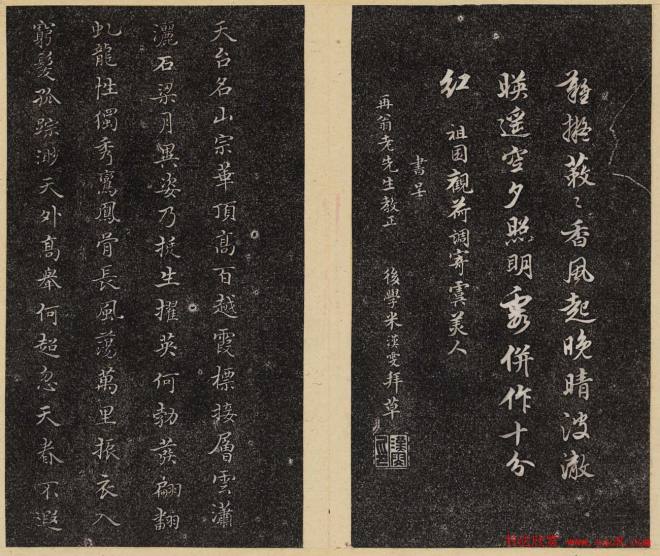 難擬蔌〻香風起晚晴波澈
暎遥空夕照明霞併作十分
紅 祖園觀荷調寄虞美人
書呈
再翁老先生教正
後學米漢雯拜草
天台名山宗華頂高百越霞標接層雲瀟
灑石梁月異姿乃挺生擢英何勃發翩翻
虬龍性獨秀鸞鳳骨長風蕩萬里振衣入
窮髮孤踪渺天外高舉何超忽天眷不遐